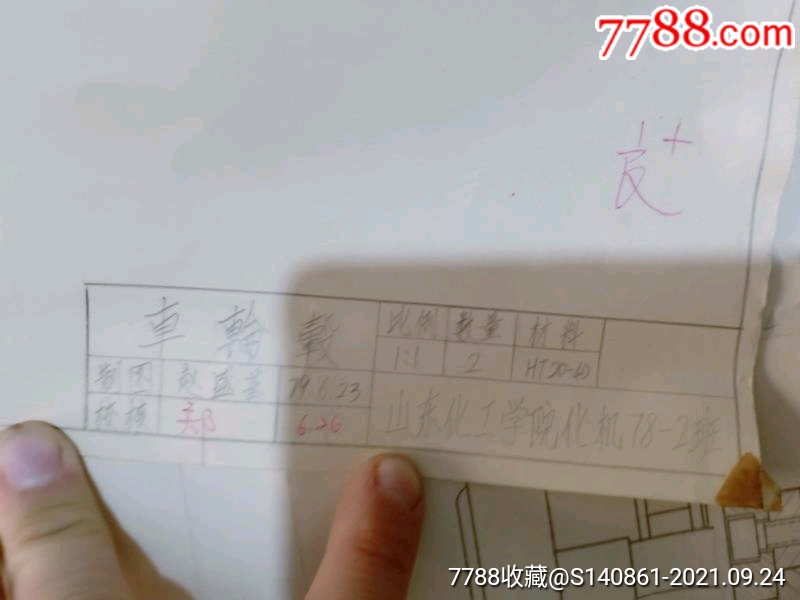 7788.com
良+
车轮毂 比例 数量 材料
1:1 2 HT20-40
制图 79.6.23
审核 郑 6.26
山东化工学院化机78-2班
7788收藏@S140861-2021.09.24